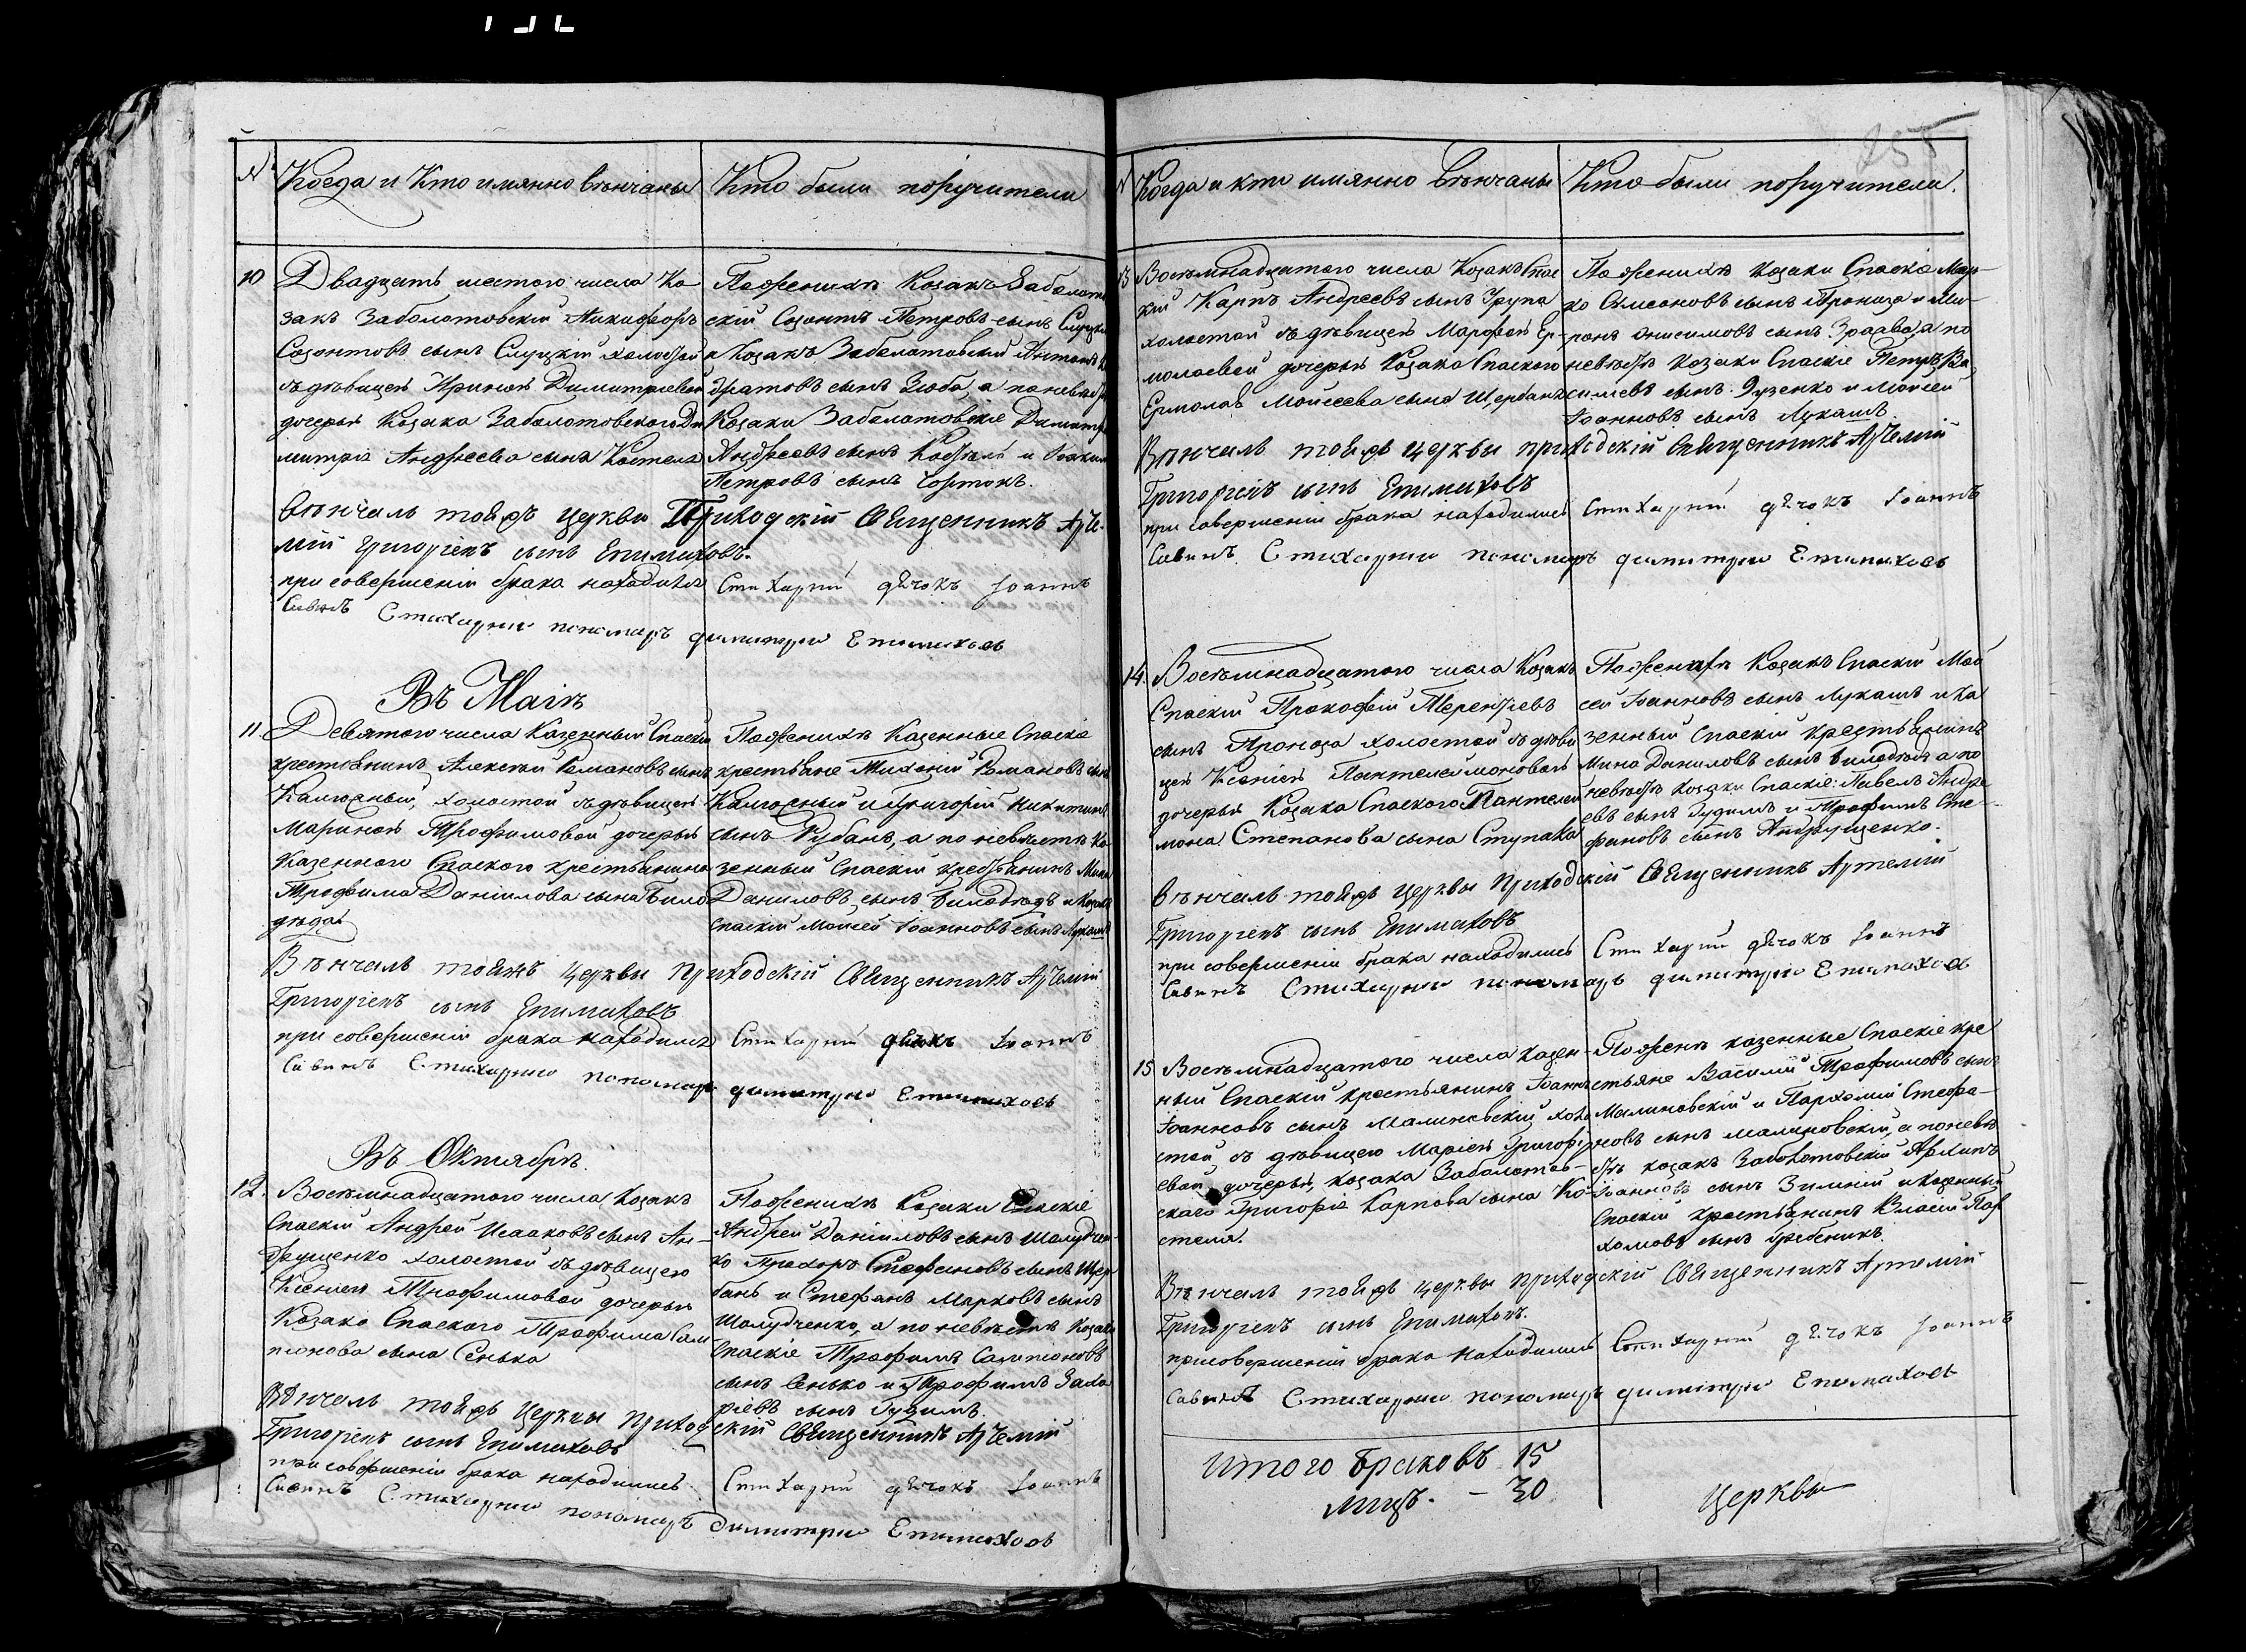 № Когда и Кто имянно вѣнчаны
Кто были поручители
10 Двадцать шестого числа Ко
закъ Заболотовскій Никифоръ
Созонтовъ сынъ Слуцкій холостой
съ дѣвицею Ириною Димитріевой
дочерью Козака Заболотовского Ди
митрія Андреева сына Костеля
По женихѣ Козакъ Заболото
скій Созонтъ Петровъ сынъ Слуцкій
и Козакъ Заболотовскій Антонъ
сынъ Зюба, а по невѣстѣ
Козаки Заболотовскіе Димитрі
Андреевъ сынъ Костель и Іоаким
Петровъ сынъ Чортокъ.
вѣнчалъ тойжъ церкви Приходскій Священникъ Арте
мій Григоріевъ сынъ Епимаховъ.
при совершеніи брака находились Стихарній дячокъ Іоаннъ
Савинъ Стихарни пономаръ димитри Епимаховъ
Въ Маіѣ
11. Девятого числа Казенный Спаскій
крестянинъ Алексѣй Романовъ сынъ
Калюжный, холостой съ дѣвицею
Мариною Трофимовой дочерью
Казенного Спаского крестьянина
Трофима Даніилова сына Било
дѣда
По женихѣ Казенные Спаскіе
крестьяне Тихоній Романовъ сынъ
Калюжный и Григорій Никитинъ
сынъ Рубанъ, а по невѣстѣ Ка
зенный Спаскій крестьянинъ Мина
Даниловъ сынъ Билодѣдъ и Козакъ
Спаскій Моисей Іоанновъ сынъ Лукашъ
Вѣнчалъ тойжъ церкви приходскій Священникъ Артемій
Григоріевъ сынъ Епимаховъ
при совершеніи брака находились Стихарній дячокъ Іоаннъ
Савинъ Стихарни пономаръ димитри Епимаховъ
Въ Октябрѣ.
12. Восѣмнадцатого числа Козакъ
Спаскій Андрей Исааковъ сынъ Ан-
друщенко холостой съ дѣвицею
Ксеніею Трофимовой дочерью
Козака Спаского Трофима Сам
піонова сына Сенька
По женихѣ Козаки Спаскіе
Андрей Даніиловъ сынъ Шолудчен-
ко Прохоръ Стефановъ сынъ Щер
банъ и Стефанъ Марковъ сынъ
Шолудченко, а по невѣстѣ Козаки
Спаскіе Трофимъ Сампіоновъ
сынъ Сенько и Трофимъ Заха
ріевъ сынъ Гудимъ.
Вѣнчалъ тойжъ Церкви приходскій Священникъ Артемій
Григоріевъ сынъ Епимаховъ
при совершеніи брака находились Стихарній дячокъ Іоаннъ
Савинъ Стихарни пономаръ димитри Епимаховъ
255
№ Когда и кто имянно вѣнчаны
Кто были поручители.
13 Восѣмнадцатого числа Козакъ Спас
кій Карпъ Андреевъ сынъ Крупа
холостой съ дѣвицею Марфою Ер-
молаевой дочерью Козака Спаского
Ермолая Моисеева сына Щербаня
По женихѣ Козаки Спаскіе Мар-
ко Симеоновъ сынъ Проноза и Ми-
ронъ Онисимовъ сынъ а по
невѣстѣ Козаки Спаскіе Петръ Ва
силіевъ сынъ Дузенко и Моисей
Іоанновъ сынъ Лукашъ.
Вѣнчалъ тойжъ церкви приходскій Священникъ Артемій
Григоріевъ сынъ Епимаховъ
при совершеніи брака находились Стихарній дячокъ Іоаннъ
Савинъ Стихарни пономаръ димитри Епимаховъ
14. Восѣмнадцатого числа Козакъ
Спаскій Прокофій Терентіевъ
сынъ Проноза холостой съ дѣви
цею Ксеніею Пантелеймоновою
дочерью Козака Спаского Пантелей
мона Степанова сына Ступака
По женихѣ Козакъ Спаскій Мои
сей Іоанновъ сынъ Лукашъ и Ка
зенный Спаскій крестьянинъ
Мина Даниловъ сынъ Билодѣдъ а по
невѣстѣ Козаки Спаскіе: Павелъ Андре
евъ сынъ Гудимъ и Трофимъ Сте-
фановъ сынъ Андрущенко.
вѣнчалъ тойжъ Церкви Приходскій Священникъ Артемій
Григоріевъ сынъ Епимаховъ
при совершеніи брака находились Стихарній дячокъ Іоаннъ
Савинъ Стихарни пономаръ димитри Епимаховъ
15 Восѣмнадцатого числа казен-
ный Спаскій крестьянинъ Іоаннъ
Іоанновъ сынъ Малиновскій холо
стой съ дѣвицею Маріею Григорі
евой дочерью, козака Заболотов-
ского Григорія Карпова сына Ко-
стеля.
По женихѣ казенные Спаскіе кре
стьяне Василій Трофимовъ сынъ
Малиновскій и Пархомій Стефа-
новъ сынъ Малиновскій, а по невѣ
стѣ козакъ Заболотовскій Архипъ
Іоанновъ сынъ Зимній и казенный
Спаскій крестьянинъ Власій Пар
хомовъ сынъ Гребеникъ.
Вѣнчалъ тойжъ церкви приходскій Священникъ Артемій
Григоріевъ сынъ Епимаховъ.
при совершеніи брака находились Стихарній дячокъ Іоаннъ
Савинъ Стихарни пономаръ димитри Епимаховъ
Итого браковъ 15
лицъ. - 30
Церкви